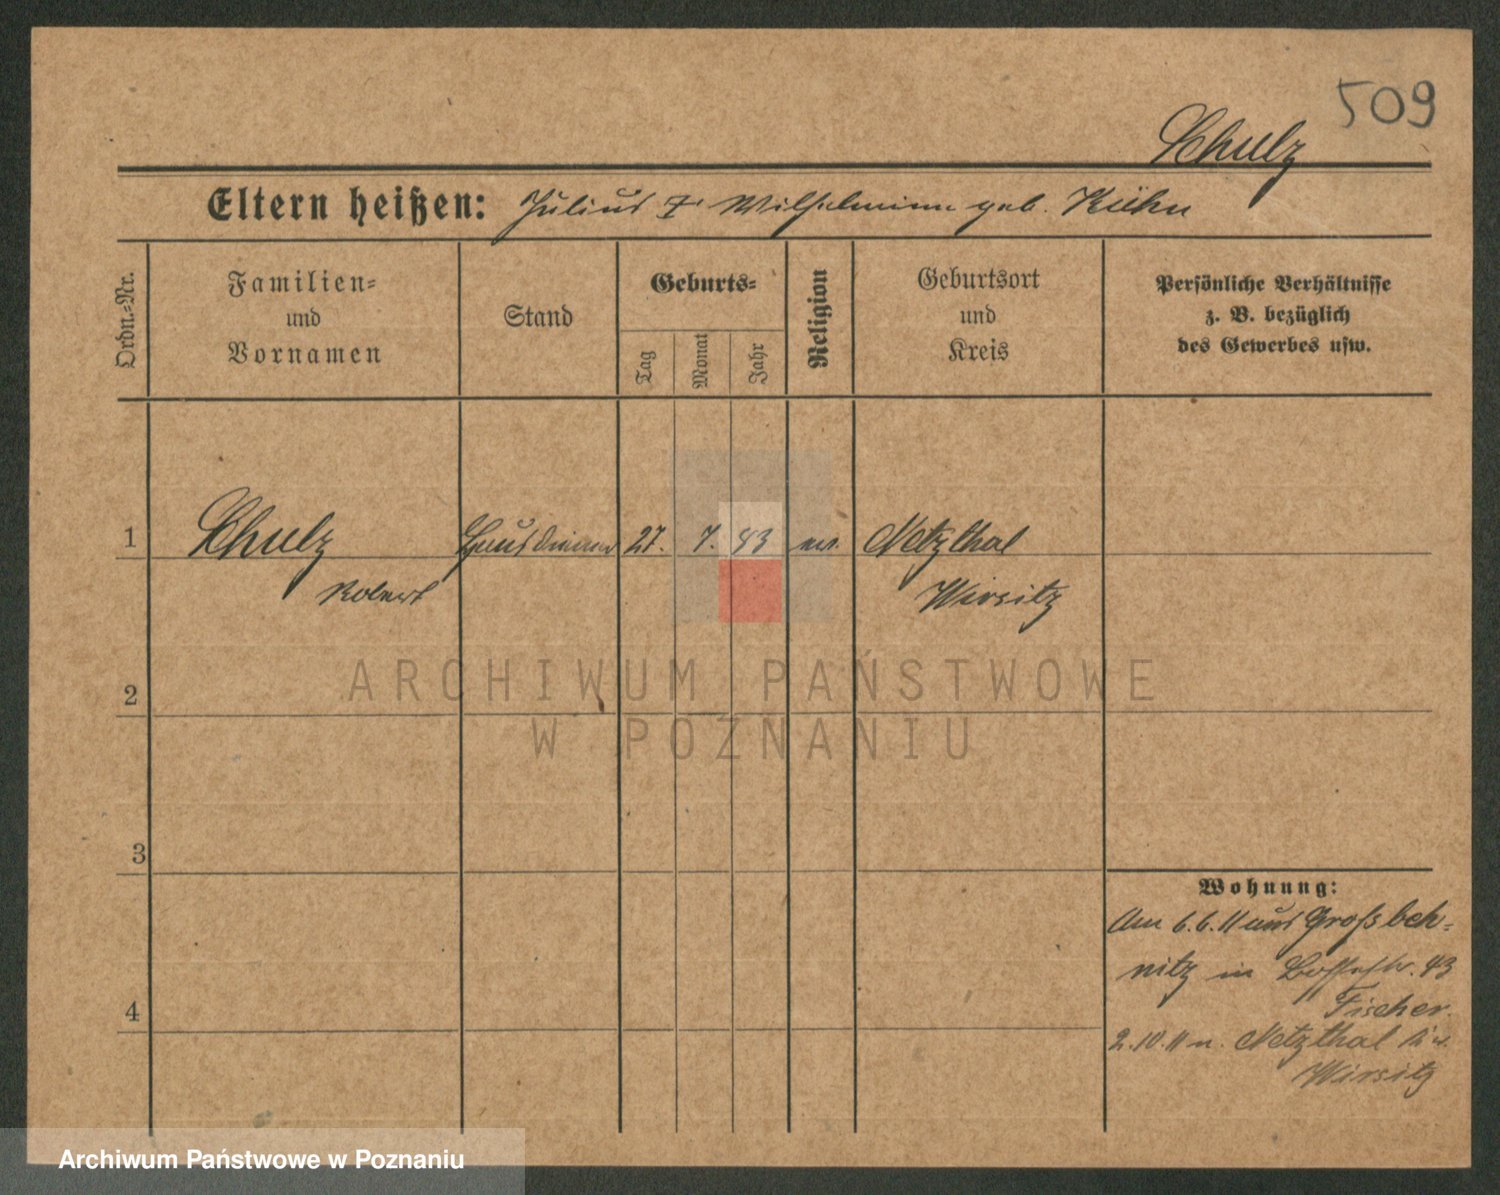 509
Schulz
Eltern heißen: Julius u. Wilhelmine geb. Kühn
Ordn.-Nr.
Familien-
und
Vornamen
Stand
Geburts-
Tag
Monat
Jahr
Religion
Geburtsort
und
Kreis
Persönliche Verhältnisse
z. B. bezüglich
des Gewerbes usw.
1 Schulz Hausdiener 27. 7. 93 ev. Netzthal
Robert Wirsitz
2
3
4
Wohnung:
Am 6.6.11 aus Großbeh-
nitz in 43
Fischer.
2.10.11 n. Netzthal Kr.
Wirsitz
ARCHIWUM PAŃSTWOWE
W POZNANIU
Archiwum Państwowe w Poznaniu